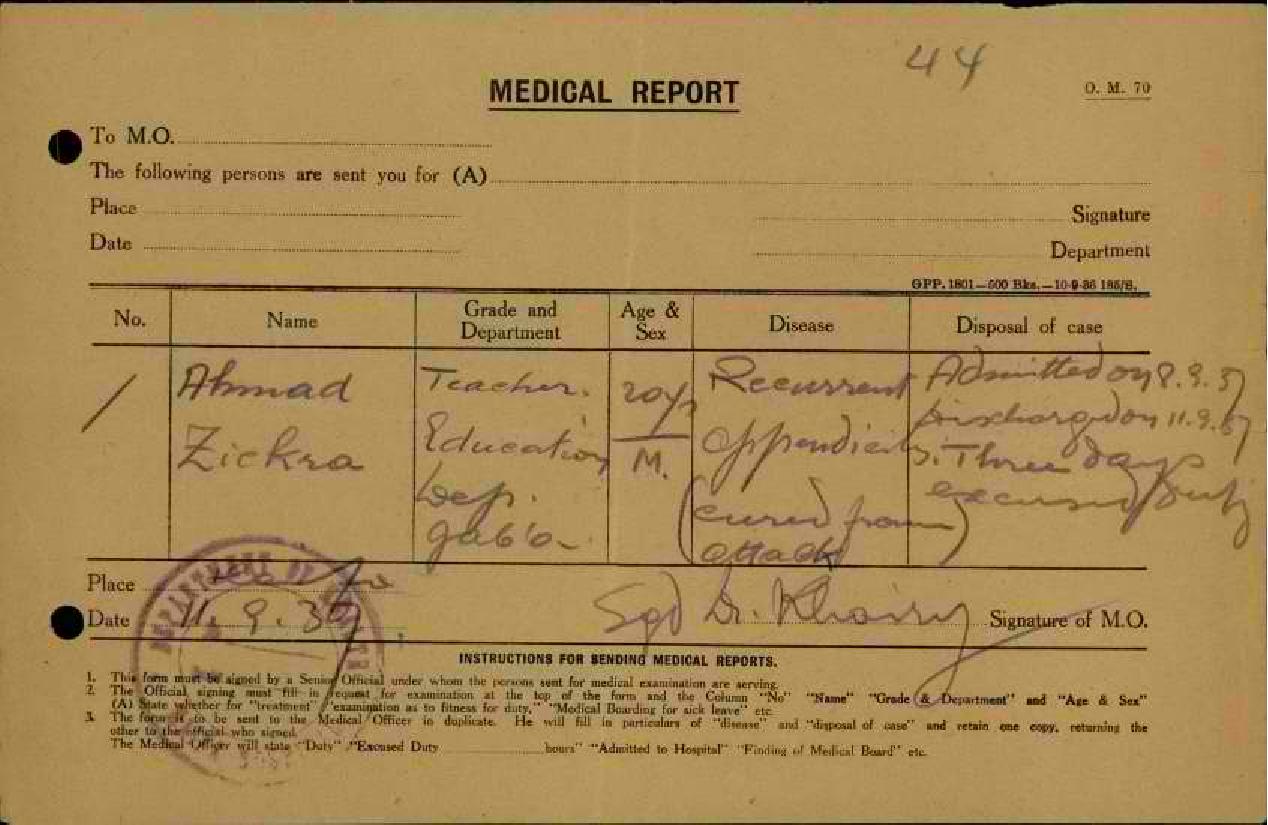 44
MEDICAL REPORT
O. M. 70
To M.O.
The following persons are sent you for (A)
Place
Signature
Date
Department
GPP. 1801—600 Bks.—10-9-36 186/S.
No. Name Grade and Department Age & Sex Disease Disposal of case
/ Ahmad Teacher. 20 yrs Recurrent Admitted on 8.9.37
Zickra Education M. appendicitis. Discharged on 11.9.37
Dep. (cured from Three days
attack) excused duty
Place
Date 11.9.37 Sgd Dr. Khairy Signature of M.O.
INSTRUCTIONS FOR SENDING MEDICAL REPORTS.
1. This form must be signed by a Senior Official under whom the persons sent for medical examination are serving.
2. The Official signing must fill in request for examination at the top of the form and the Column "No" "Name" "Grade & Department" and "Age & Sex"
(A) State whether for "treatment" "examination as to fitness for duty," "Medical Boarding for sick leave" etc.
3. The form is to be sent to the Medical Officer in duplicate. He will fill in particulars of "disease" and "disposal of case" and retain one copy, returning the
other to the official who signed.
The Medical Officer will state "Duty" "Excused Duty ............ hours" "Admitted to Hospital" "Finding of Medical Board" etc.